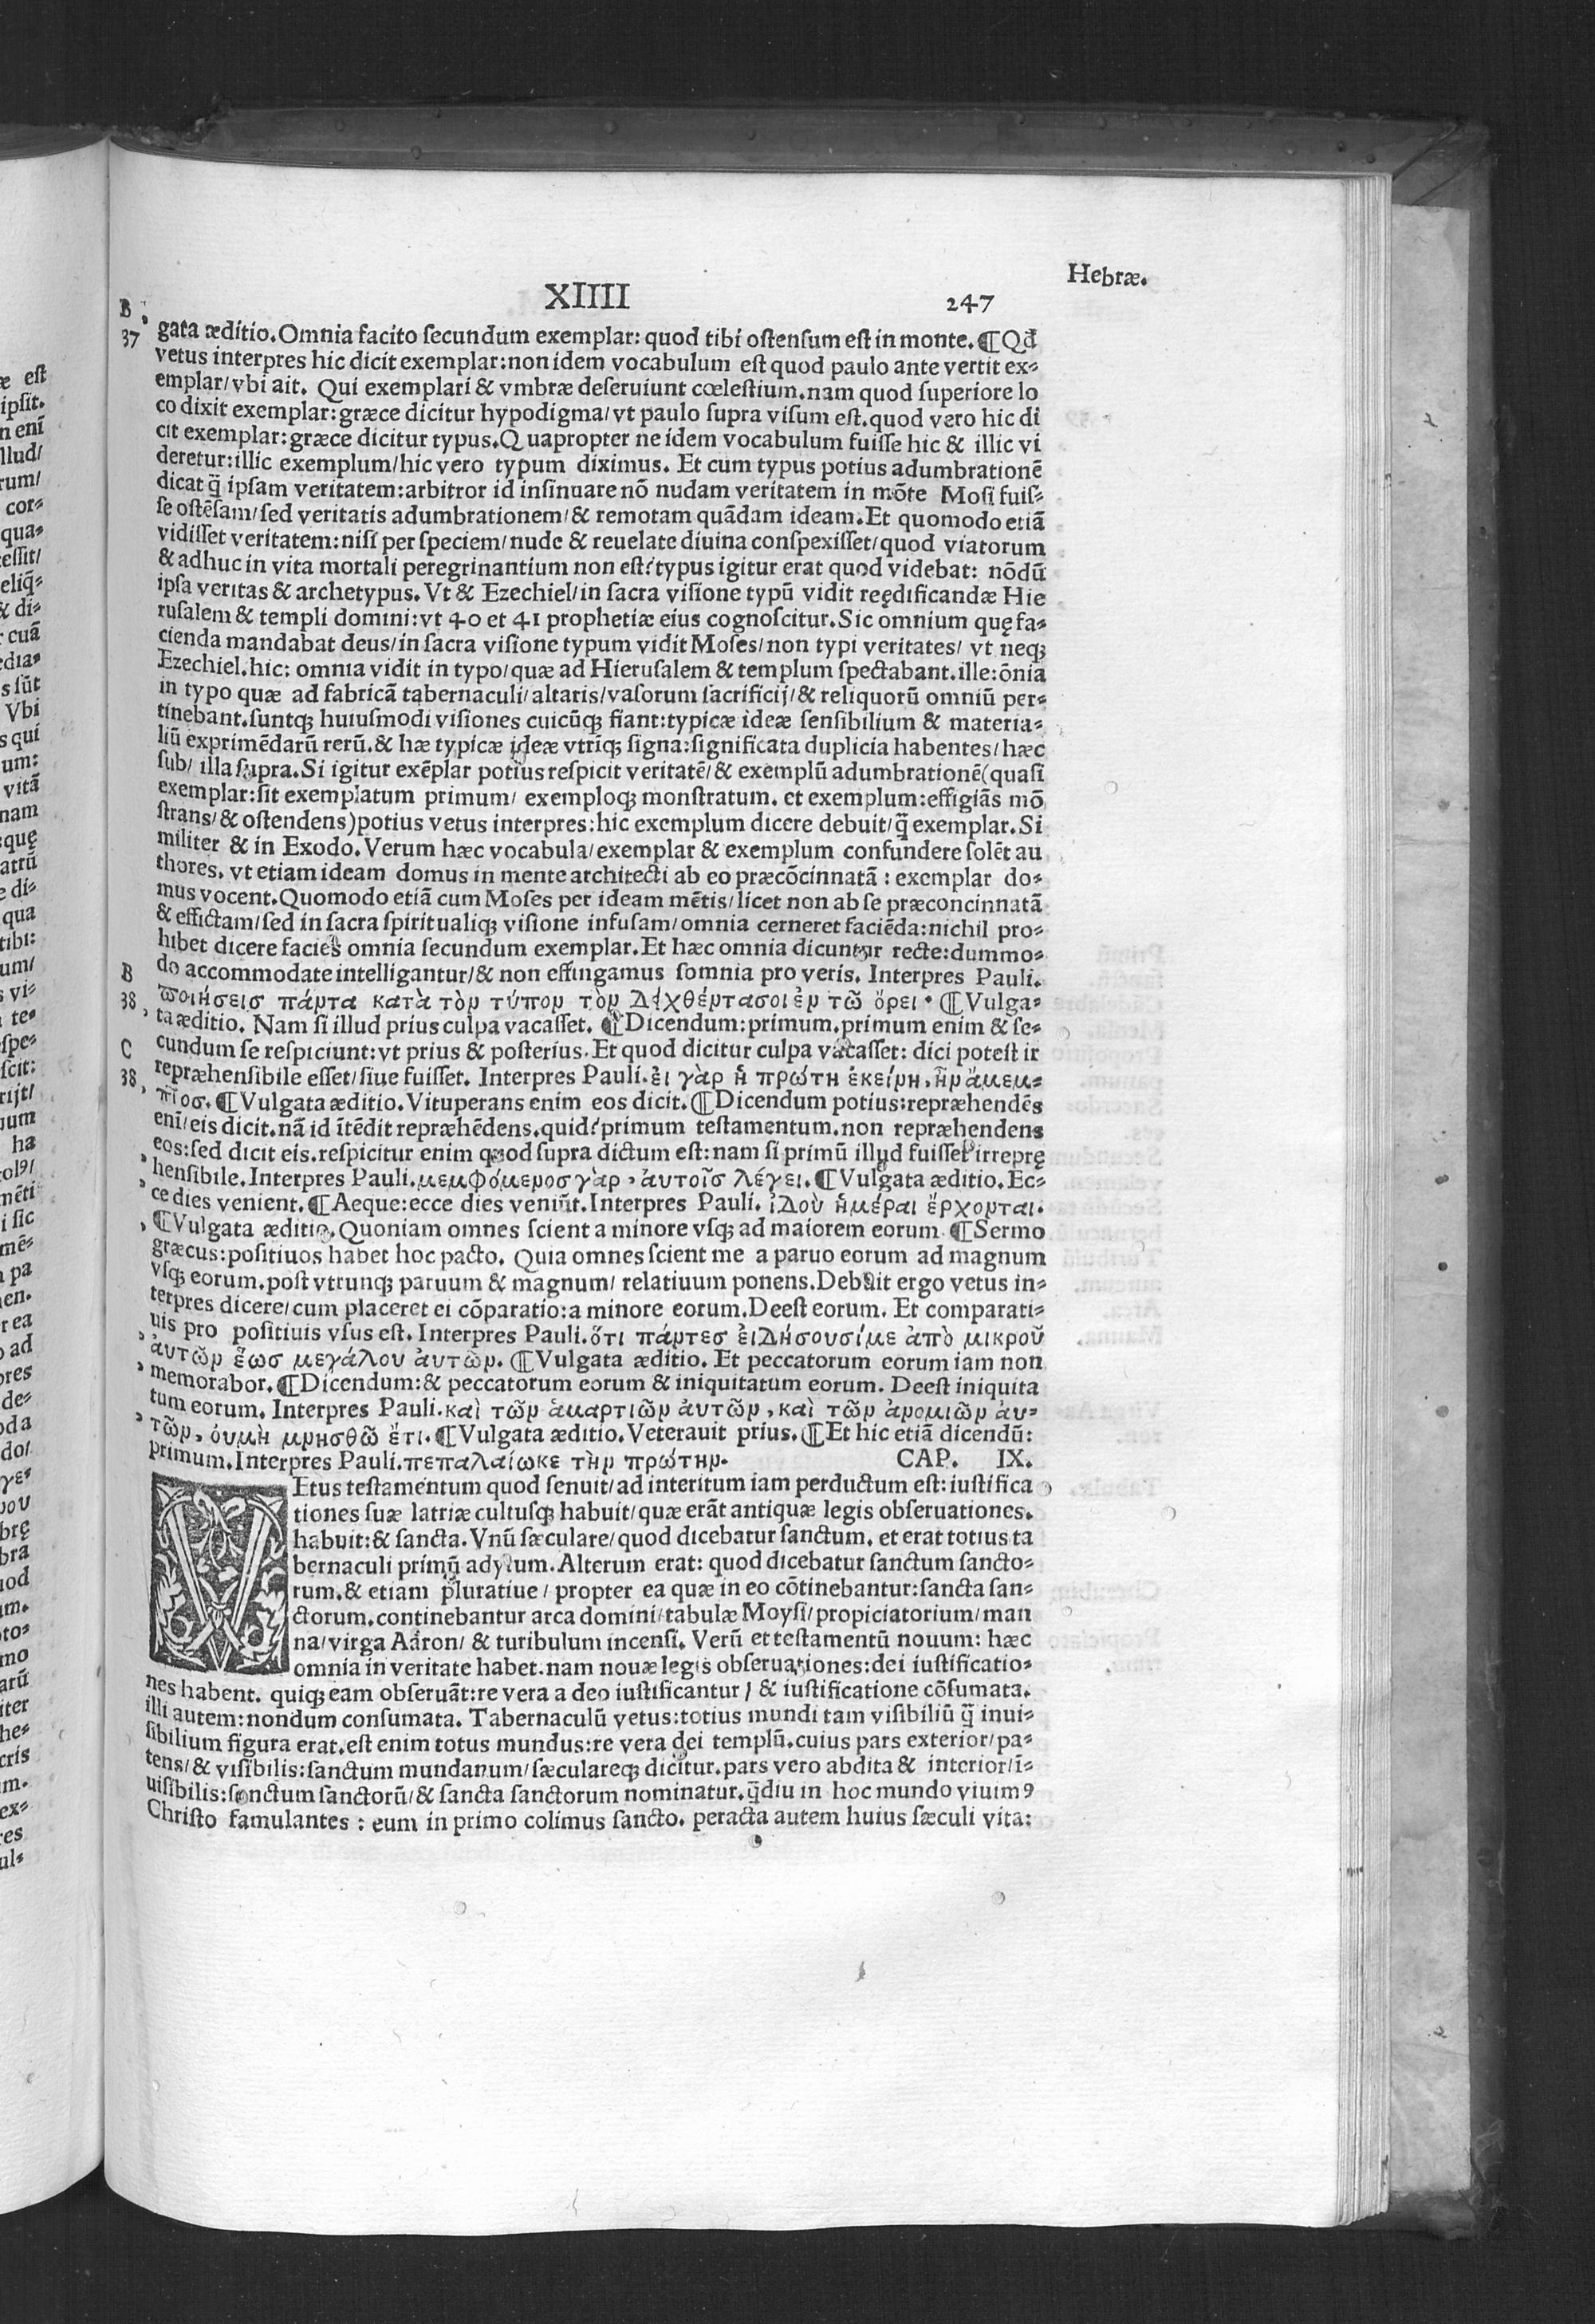 Hebræ.
XIIII 247
B gata æditio. Omnia facito secundum exemplar: quod tibi ostensum est in monte. ¶ Qđ
37 vetus interpres hic dicit exemplar: non idem vocabulum est quod paulo ante vertit ex-
emplar/ vbi ait. Qui exemplari & vmbræ deseruiunt cœlestium. nam quod superiore lo
co dixit exemplar: græce dicitur hypodigma/ vt paulo supra visum est. quod vero hic di
cit exemplar: græce dicitur typus. Quapropter ne idem vocabulum fuisse hic & illic vi
deretur: illic exemplum/ hic vero typum diximus. Et cum typus potius adumbrationē
dicat q̄ ipsam veritatem: arbitror id insinuare nō nudam veritatem in mōte Mosi fuis-
se ostēsam/ sed veritatis adumbrationem/ & remotam quādam ideam. Et quomodo etiā
vidisset veritatem: nisi per speciem/ nude & reuelate diuina conspexisset/ quod viatorum
& adhuc in vita mortali peregrinantium non est? typus igitur erat quod videbat: nōdū
ipsa veritas & archetypus. Vt & Ezechiel/ in sacra visione typū vidit reędificandæ Hie
rusalem & templi domini: vt 40 et 41 prophetiæ eius cognoscitur. Sic omnium quę fa-
cienda mandabat deus/ in sacra visione typum vidit Moses/ non typi veritates/ vt neq;
Ezechiel. hic: omnia vidit in typo/ quæ ad Hierusalem & templum spectabant. ille: ōnia
in typo quæ ad fabricā tabernaculi/ altaris/ vasorum sacrificij/ & reliquorū omniū per-
tinebant. suntq; huiusmodi visiones cuicūq; fiant: typicæ ideæ sensibilium & materia-
liū exprimēdarū rerū. & hæ typicæ ideæ vtriq; signa: significata duplicia habentes/ hæc
sub/ illa supra. Si igitur exēplar potius respicit veritatē/ & exemplū adumbrationē (quasi
exemplar: sit exemplatum primum/ exemploq; monstratum. et exemplum: effigiās mō
strans/ & ostendens) potius vetus interpres: hic exemplum dicere debuit/ q̄ exemplar. Si
militer & in Exodo. Verum hæc vocabula/ exemplar & exemplum confundere solēt au
thores. vt etiam ideam domus in mente architecti ab eo præcōcinnatā: exemplar do-
mus vocent. Quomodo etiā cum Moses per ideam mētis/ licet non ab se præconcinnatā
& effictam/ sed in sacra spiritualiq; visione infusam/ omnia cerneret faciēda: nichil pro-
hibet dicere facies omnia secundum exemplar. Et hæc omnia dicuntur recte: dummo-
B do accommodate intelligantur/ & non effingamus somnia pro veris. Interpres Pauli.
38 ποιήσεισ πάντα κατὰ τὸν τύπον τὸν Δειχθέντασοι ἐν τῶ ὄρει. ¶ Vulga-
ta æditio. Nam si illud prius culpa vacasset. ¶ Dicendum: primum. primum enim & se-
C cundum se respiciunt: vt prius & posterius. Et quod dicitur culpa vacasset: dici potest ir
38 repræhensibile esset/ siue fuisset. Interpres Pauli. ἐι γὰρ ἡ πρώτη ἐκείνη, ἦν ἄμεμ-
πτοσ. ¶ Vulgata æditio. Vituperans enim eos dicit. ¶ Dicendum potius: repræhendēs
enī/ eis dicit. nā id ītēdit repræhēdens. quid? primum testamentum. non repræhendens
eos: sed dicit eis. respicitur enim quod supra dictum est: nam si primū illud fuisset irreprę
hensibile. Interpres Pauli. μεμφόμενοσ γὰρ, ἀυτοῖσ λέγει. ¶ Vulgata æditio. Ec-
ce dies venient. ¶ Aeque: ecce dies veniūt. Interpres Pauli. ἰΔοὺ ἡμέραι ἔρχονται.
¶ Vulgata æditio. Quoniam omnes scient a minore vsq; ad maiorem eorum. ¶ Sermo
græcus: positiuos habet hoc pacto. Quia omnes scient me a paruo eorum ad magnum
vsq; eorum. post vtrunq; paruum & magnum/ relatiuum ponens. Debuit ergo vetus in-
terpres dicere/ cum placeret ei cōparatio: a minore eorum. Deest eorum. Et comparati-
uis pro positiuis vsus est. Interpres Pauli. ὅτι πάντεσ ἐιΔήσουσίμε ἀπὸ μικροῦ
ἀυτῶν ἕωσ μεγάλου ἀυτῶν. ¶ Vulgata æditio. Et peccatorum eorum iam non
memorabor. ¶ Dicendum: & peccatorum eorum & iniquitatum eorum. Deest iniquita
tum eorum. Interpres Pauli. καὶ τῶν ἁμαρτιῶν ἀυτῶν, καὶ τῶν ἀνομιῶν ἀυ-
τῶν, ὀυμὴ μνησθῶ ἔτι. ¶ Vulgata æditio. Veterauit prius. ¶ Et hic etiā dicendū:
primum. Interpres Pauli. πεπαλαίωκε τὴν πρώτην. CAP. IX.
VEtus testamentum quod senuit/ ad interitum iam perductum est: iustifica
tiones suæ latriæ cultusq; habuit/ quæ erāt antiquæ legis obseruationes.
habuit: & sancta. Vnū sæculare/ quod dicebatur sanctum. et erat totius ta
bernaculi primū adytum. Alterum erat: quod dicebatur sanctum sancto-
rum. & etiam pluratiue/ propter ea quæ in eo cōtinebantur: sancta san-
ctorum. continebantur arca domini/ tabulæ Moysi/ propiciatorium/ man
na/ virga Aaron/ & turibulum incensi. Verū et testamentū nouum: hæc
omnia in veritate habet. nam nouæ legis obseruationes: dei iustificatio-
nes habent. quiq; eam obseruāt: re vera a deo iustificantur/ & iustificatione cōsumata.
illi autem: nondum consumata. Tabernaculū vetus: totius mundi tam visibiliū q̄ inui-
sibilium figura erat. est enim totus mundus: re vera dei templū. cuius pars exterior/ pa-
tens/ & visibilis: sanctum mundanum/ sæculareq; dicitur. pars vero abdita & interior/ ī-
uisibilis: sanctum sanctorū/ & sancta sanctorum nominatur. q̄diu in hoc mundo viuimꝰ
Christo famulantes: eum in primo colimus sancto. peracta autem huius sæculi vita: